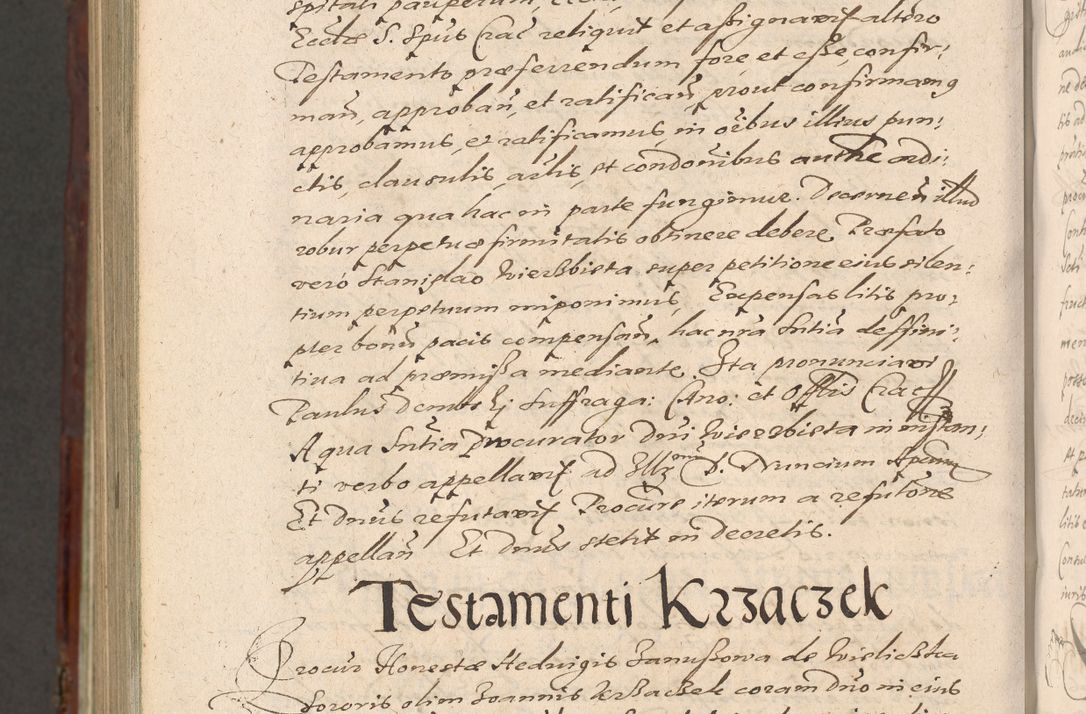 Eccl̄æ S. Sp̄us Crac̄ reliquit et assignavit altero
Testamento præferrendum fore et esse, confir,
man̄, approban̄, et ratifican̄, prout confirmamq
approbamus, et ratificamus in oībus illius pun,
ctis, clausulis, arlis, et condonibus authe ordi,
naria qua hac in parte fungimur. Decernen̄ illud
robur perpetuæ firmitatis obtinere debere, Præfato
verò Stanislao Wierzbieta super petitione eius silen,
tium perpetuum imponimus, Expensas litis pro,
pter bonū pacis compensan̄, hac nrā Sntiā deffini,
tiva ad præmissa mediante. Ita pronunciavi
Paulus Dembski Suffraga: Cano: et Offlis Crac
A qua Sntia Procurator Dni Wierzbieta in instan,
ti verbo appellavit ad Illr̄ D. Nuncium Aplicum
Et Dnūs refutavit Procur̄e iterum a refutōne
appellan̄ Et Dnūs stetit in decretis.
Testamenti Krzaczek
Procur̄ Honestæ Hedvigis Janussowa de Wieliczka
Sororis olim Joannis Krzaczek coram Dn̄o in eius